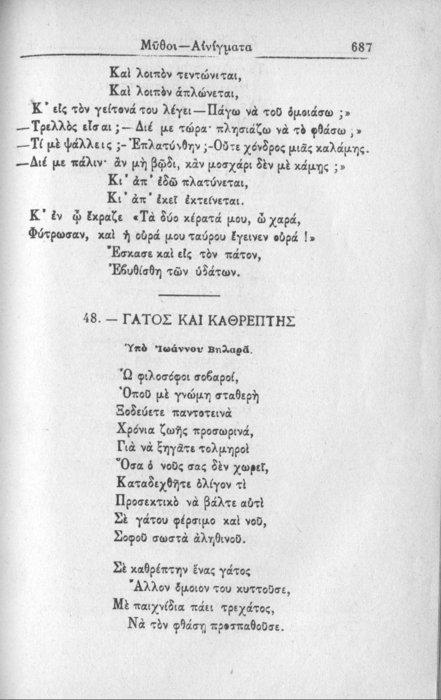 Μῦθοι—Αἰνίγματα 687
Καὶ λοιπὸν τεντώνιται,
Καὶ λοιπὸν ἁπλώνεται,
Κ᾿ εἰς τὸν γείτονά του λέγει—Πάγω νὰ τοῦ ὁμοιάσω ;»
—Τρελλὸς εἶσαι ;—Διέ με τώρα· πλησιάζω νὰ τὸ φθάσω ;»
—Τί μὲ ψάλλεις ;-᾿Επλατύνθην ;-Οὔτε χόνδρος μιᾶς καλάμης.
—Διέ με πάλιν· ἂν μὴ βῶδι, κἂν μοσχάρι δὲν μὲ κάμῃς ;»
Κι᾿ ἀπ᾿ ἐδῶ πλατύνεται,
Κι᾿ ἀπ᾿ ἐκεῖ ἐκτείνεται.
Κ᾿ ἐν ᾧ ἔκραζε «Τὰ δύο κέρατά μου, ὢ χαρά,
Φύτρωσαν, καὶ ἡ οὐρά μου ταύρου ἔγεινεν οὐρά !»
῎Εσκασε καὶ εἰς τὸν πάτον,
᾿Εβυθίσθη τῶν ὑδάτων.
48. — ΓΑΤΟΣ ΚΑΙ ΚΑΘΡΕΠΤΗΣ
῾Υπὸ ᾿Ιωάννου Βηλαρᾶ.
῏Ω φιλοσόφοι σοβαροί,
῾Οποῦ μὲ γνώμη σταθερὴ
Ξοδεύετε παντοτεινὰ
Χρόνια ζωῆς προσωρινά,
Γιὰ νὰ ξηγᾶτε τολμηροὶ
῞Οσα ὁ νοῦς σας δὲν χωρεῖ,
Καταδεχθῆτε ὀλίγον τὶ
Προσεκτικὸ νὰ βάλτε αὐτὶ
Σὲ γάτου φέρσιμο καὶ νοῦ,
Σοφοῦ σωστὰ ἀληθινοῦ.
Σὲ καθρέπτην ἕνας γάτος
῎Αλλον ὅμοιον του κυττοῦσε,
Μὲ παιχνίδια πάει τρεχάτος,
Νὰ τὸν φθάσῃ προσπαθοῦσε.